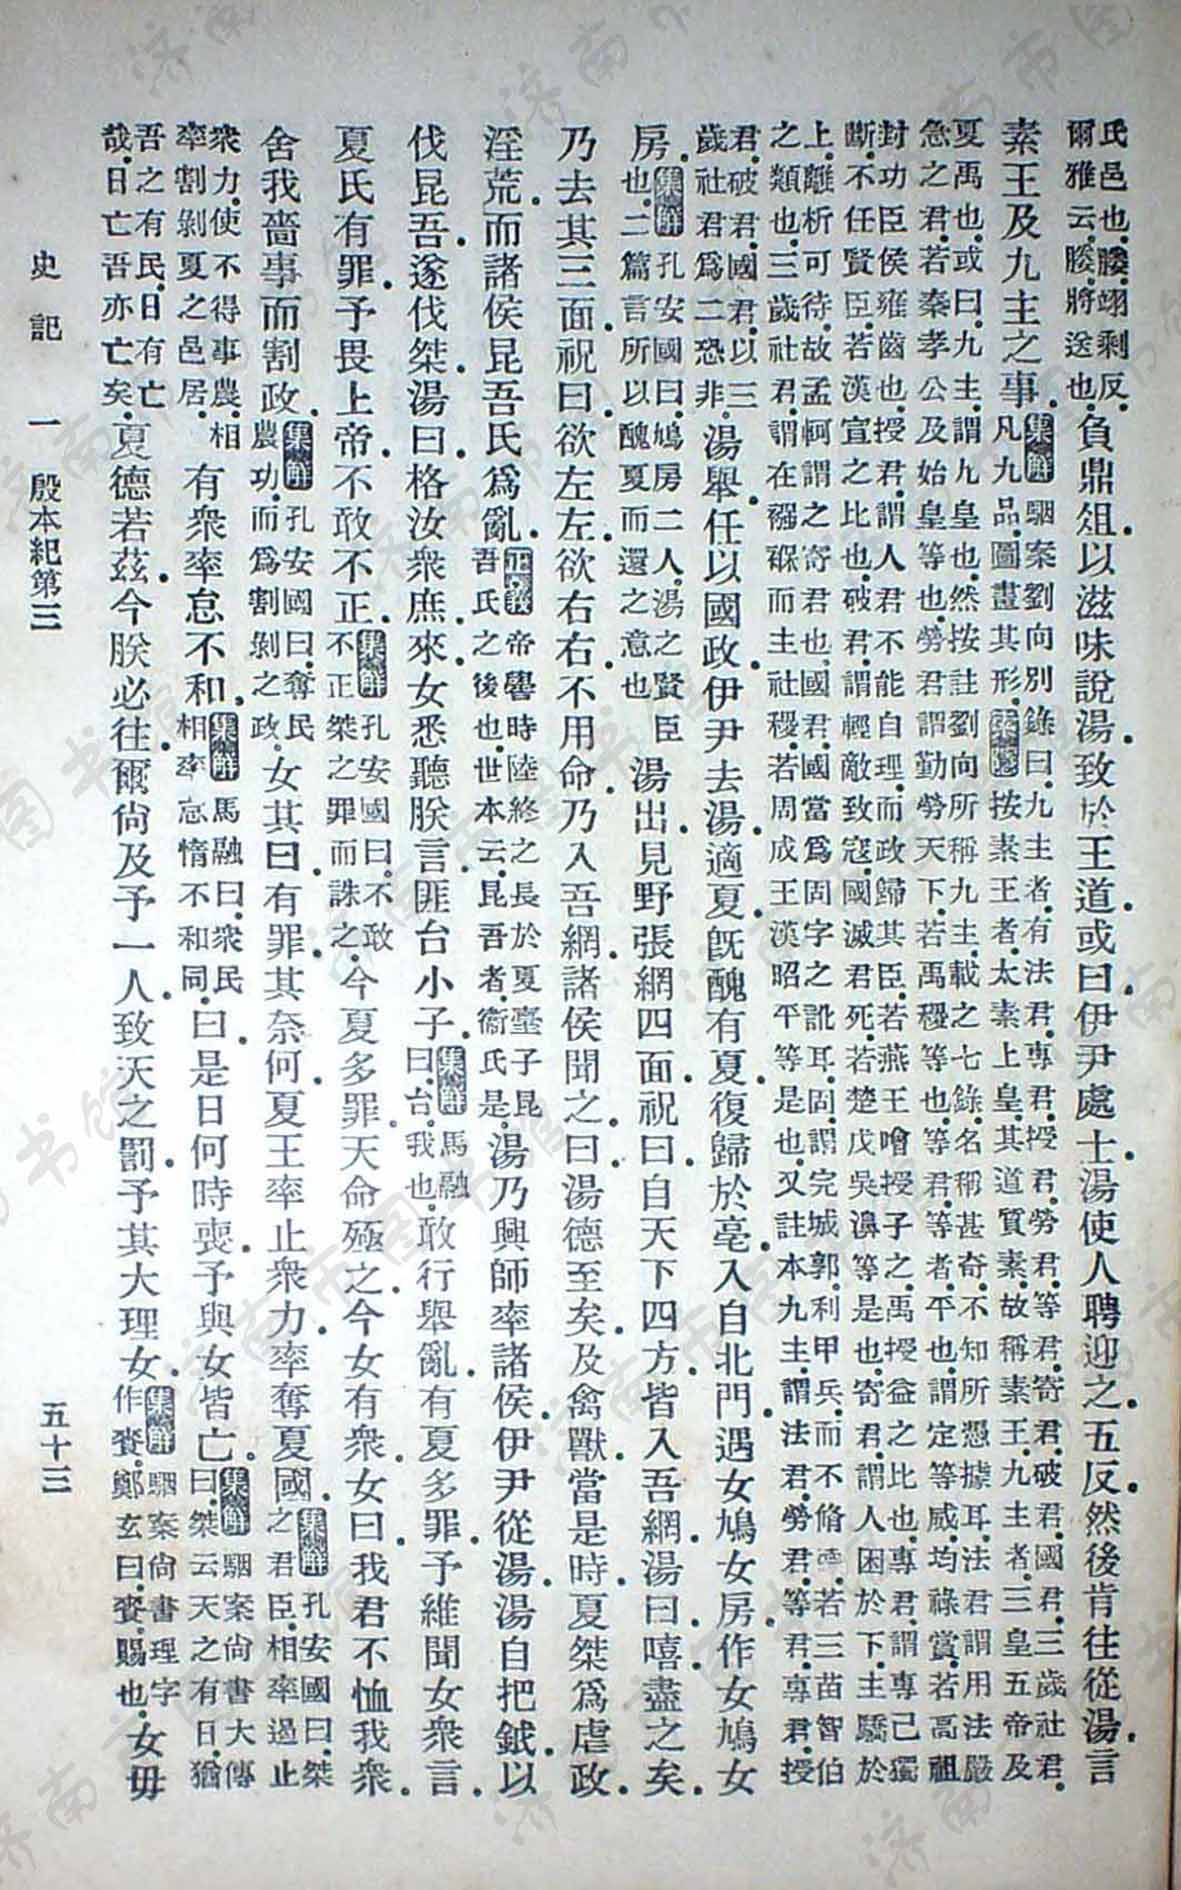 氏邑也。媵。翊剩反。
爾雅云。媵。將送也。負鼎俎。以滋味說湯。致於王道。或曰。伊尹處士。湯使人聘迎之。五反。然後肯往從湯。言
素王及九主之事。集解駰案劉向別錄曰。九主者。有法君。專君。授君。勞君。等君。寄君。破君。國君。三歲社君。
凡九品。圖畫其形。索隱按素王者。太素上皇。其道質素。故稱素王。九主者。三皇五帝及
夏禹也。或曰。九主。謂九皇也。然按註劉向所稱九主。載之七錄。名稱甚奇。不知所憑據耳。法君謂用法嚴
急之君。若秦孝公及始皇等也。勞君謂勤勞天下。若禹稷等也。等君。等者。平也。謂定等威。均祿賞。若高祖
封功臣侯雍齒也。授君。謂人君不能自理。而政歸其臣。若燕王噲授子之。禹授益之比也。專君。謂專己獨
斷。不任賢臣。若漢宣之比也。破君。謂輕敵致寇。國滅君死。若楚戊吳濞等是也。寄君。謂人困於下。主驕於
上。離析可待。故孟軻謂之寄君也。國君。國當爲固。字之訛耳。固。謂完城郭。利甲兵。而不脩德。若三苗智伯
之類也。三歲社君。謂在襁褓而主社稷。若周成王漢昭平等是也。又註本九主。謂法君。勞君。等君。專君。授
君。破君。國君。以三
歲社君爲二。恐非。湯舉任以國政。伊尹去湯適夏。旣醜有夏。復歸於亳。入自北門。遇女鳩女房。作女鳩女
房。集解孔安國曰。鳩房二人。湯之賢臣
也。二篇言所以醜夏而還之意也 湯出。見野張網四面。祝曰。自天下四方。皆入吾網。湯曰。嘻。盡之矣。
乃去其三面。祝曰。欲左左。欲右右。不用命。乃入吾網。諸侯聞之。曰。湯德至矣。及禽獸。當是時。夏桀爲虐政。
淫荒。而諸侯昆吾氏爲亂。正義帝嚳時陸終之長於夏臺子昆
吾氏之後也。世本云。昆吾者。衞氏是。湯乃興師率諸侯。伊尹從湯。湯自把鉞。以
伐昆吾。遂伐桀。湯曰。格汝衆庶。來。女悉聽朕言。匪台小子。集解馬融
曰。台。我也。敢行舉亂。有夏多罪。予維聞女衆言。
夏氏有罪。予畏上帝。不敢不正。集解孔安國曰。不敢
不正桀之罪而誅之。今夏多罪。天命殛之。今女有衆。女曰。我君不恤我衆。
舍我嗇事而割政。集解孔安國曰。奪民
農功。而爲割剝之政。女其曰。有罪。其奈何。夏王率止衆力。率奪夏國。集解孔安國曰。桀
之君臣。相率遏止
衆力。使不得事農。相
率割剝夏之邑居。有衆率怠不和。集解馬融曰。衆民
相率怠惰不和同。曰。是日何時喪。予與女皆亡。集解駰案尙書大傳
曰。桀云天之有日。猶
吾之有民。日有亡
哉。日亡吾亦亡矣。夏德若茲。今朕必往。爾尙及予一人。致天之罰。予其大理女。集解駰案尙書理字
作賚。鄭玄曰。賚。賜也。女毋
史記 一 殷本紀第三 五十三